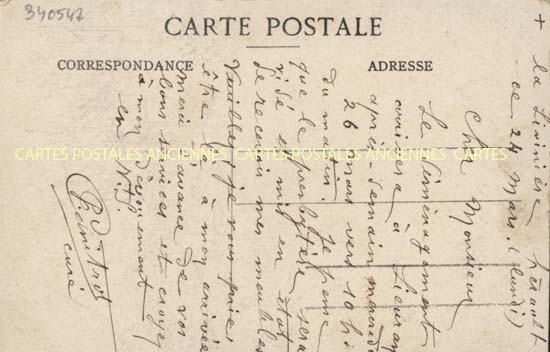 340547
+
CARTE POSTALE
CORRESPONDANCE
ADRESSE
CARTES POSTALES ANCIENNES
CARTES POSTALES ANCIENNES
CARTES POSTALES
la Livinière Hérault
ce 24 Mars (lundi)
Cher Monsieur
Le déménagement
arrivera à
après demain mercredi
26 mars vers 10 h
du matin. Je pense
que le presbytère sera
vidé et mis en état
de recevoir mes meubles
Veuillez je vous prie
être là à mon arrivée
merci d'avance de vos
bons services et croyez
à mon dévouement
en N. S.
curé